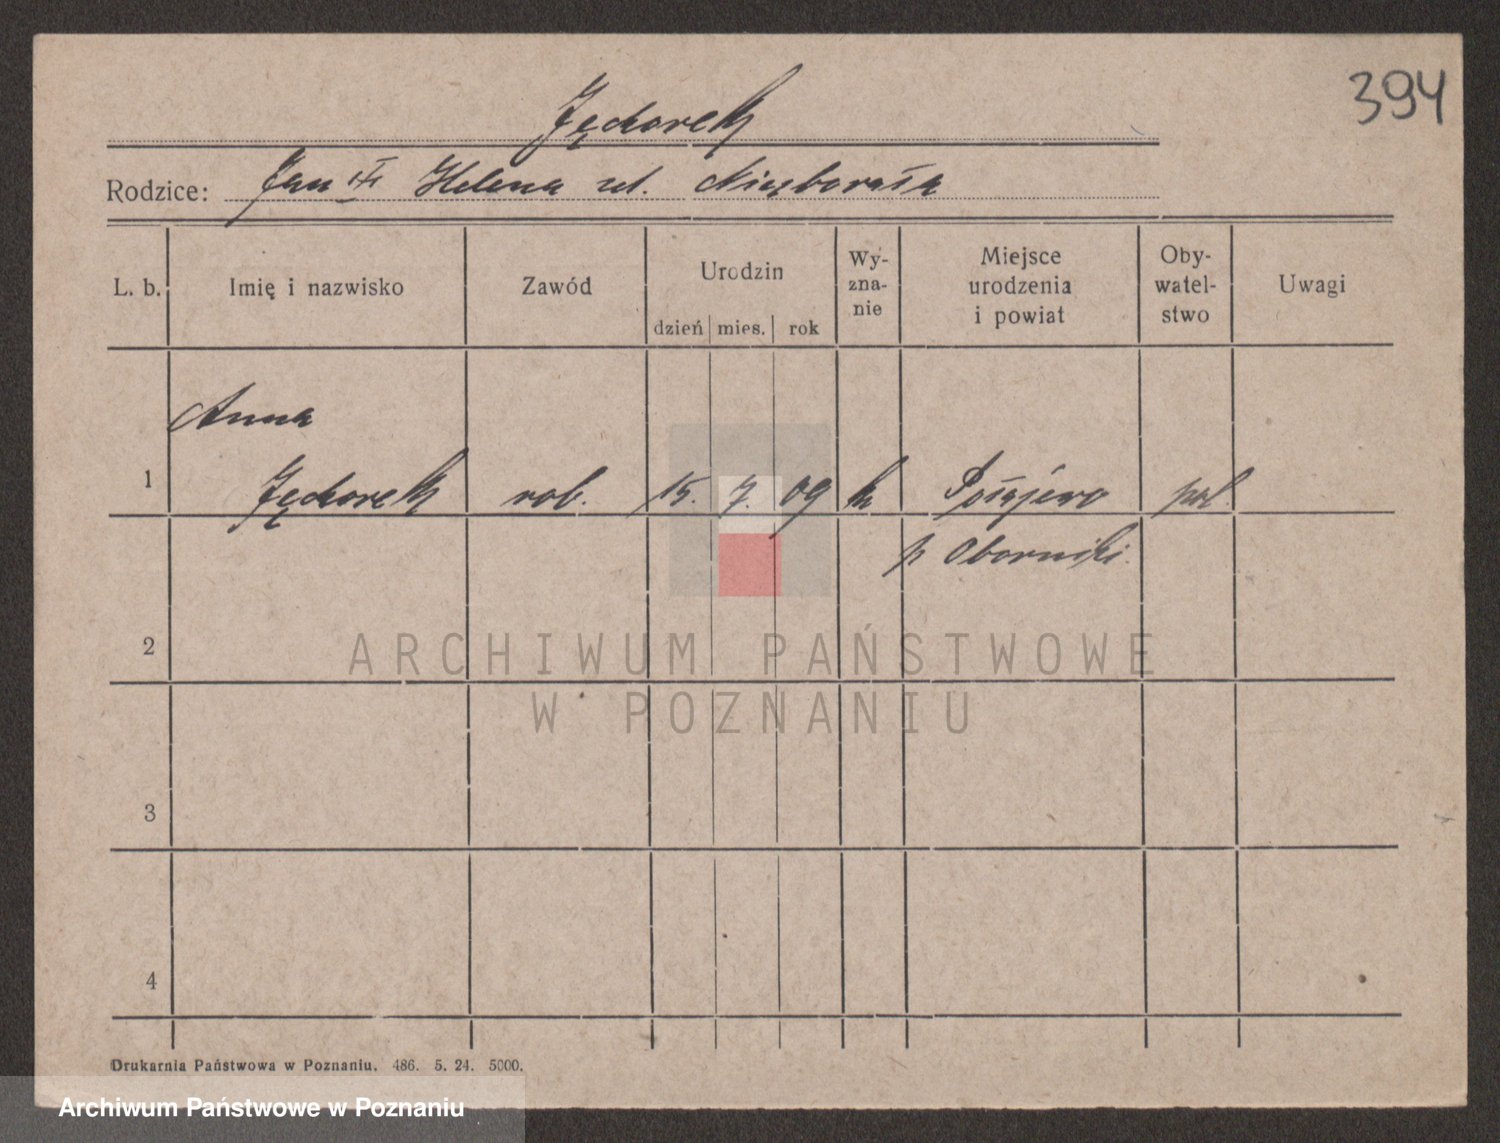 394
Jędorek
Rodzice: Jan Helena ul. Niezborała
L. b. Imię i nazwisko Zawód Urodzin dzień mies. rok Wy-zna-nie Miejsce urodzenia i powiat Oby-watel-stwo Uwagi
Anna
1 Jędorek rob. 15. 7. 09 k Połajewo pol.
p Oborniki.
2
ARCHIWUM PAŃSTWOWE
W POZNANIU
3
4
Drukarnia Państwowa w Poznaniu. 486. 5. 24. 5000.
Archiwum Państwowe w Poznaniu